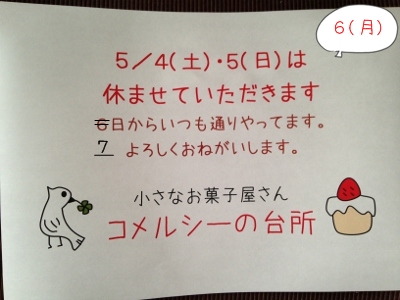 6(月)
5/4(土)・5(日)は
休ませていただきます
6日からいつも通りやってます。
7 よろしくおねがいします。
小さなお菓子屋さん
コメルシーの台所